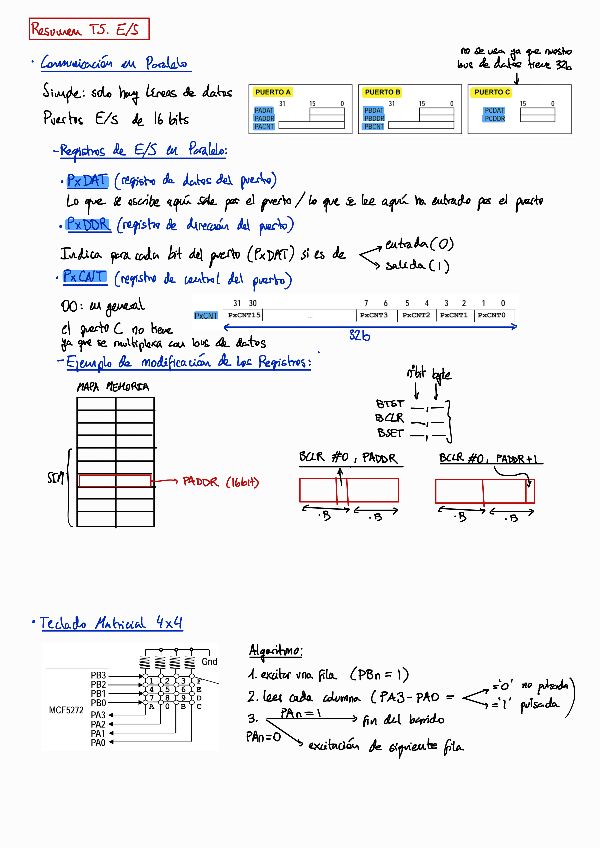 Resumen T5. E/S
no se usa ya que nuestro
bus de datos tiene 32b
· Comunicación en Paralelo
Simple: solo hay líneas de datos
Puertos E/S de 16 bits
PUERTO A
31 15 0
PADAT
PADDR
PACNT
PUERTO B
31 15 0
PBDAT
PBDDR
PBCNT
PUERTO C
15 0
PCDAT
PCDDR
- Registros de E/S en Paralelo:
· PxDAT (registro de datos del puerto)
Lo que se escribe aquí sale por el puerto / lo que se lee aquí ha entrado por el puerto
· PxDDR (registro de dirección del puerto)
Indica para cada bit del puerto (PxDAT) si es de
entrada (0)
salida (1)
· PxCNT (registro de control del puerto)
00: en general
el puerto C no tiene
ya que se multiplexa con bus de datos
31 30 7 6 5 4 3 2 1 0
PxCNT PxCNT15 ... PxCNT3 PxCNT2 PxCNT1 PxCNT0
32b
- Ejemplo de modificación de los Registros:
MAPA MEMORIA
SIM
PADDR (16bit)
nºbit byte
BTST __,__
BCLR __,__
BSET __,__
BCLR #0, PADDR
·B ·B
BCLR #0, PADDR+1
·B ·B
· Teclado Matricial 4x4
Gnd
MCF5272
PB3
PB2
PB1
PB0
PA3
PA2
PA1
PA0
1 2 3 F
4 5 6 E
7 8 9 D
A 0 B C
Algoritmo:
1. excitar una fila (PBn = 1)
2. leer cada columna (PA3-PA0 =
='0' no pulsada
='1' pulsada )
3. PAn=1 fin del barrido
PAn=0 excitación de siguiente fila